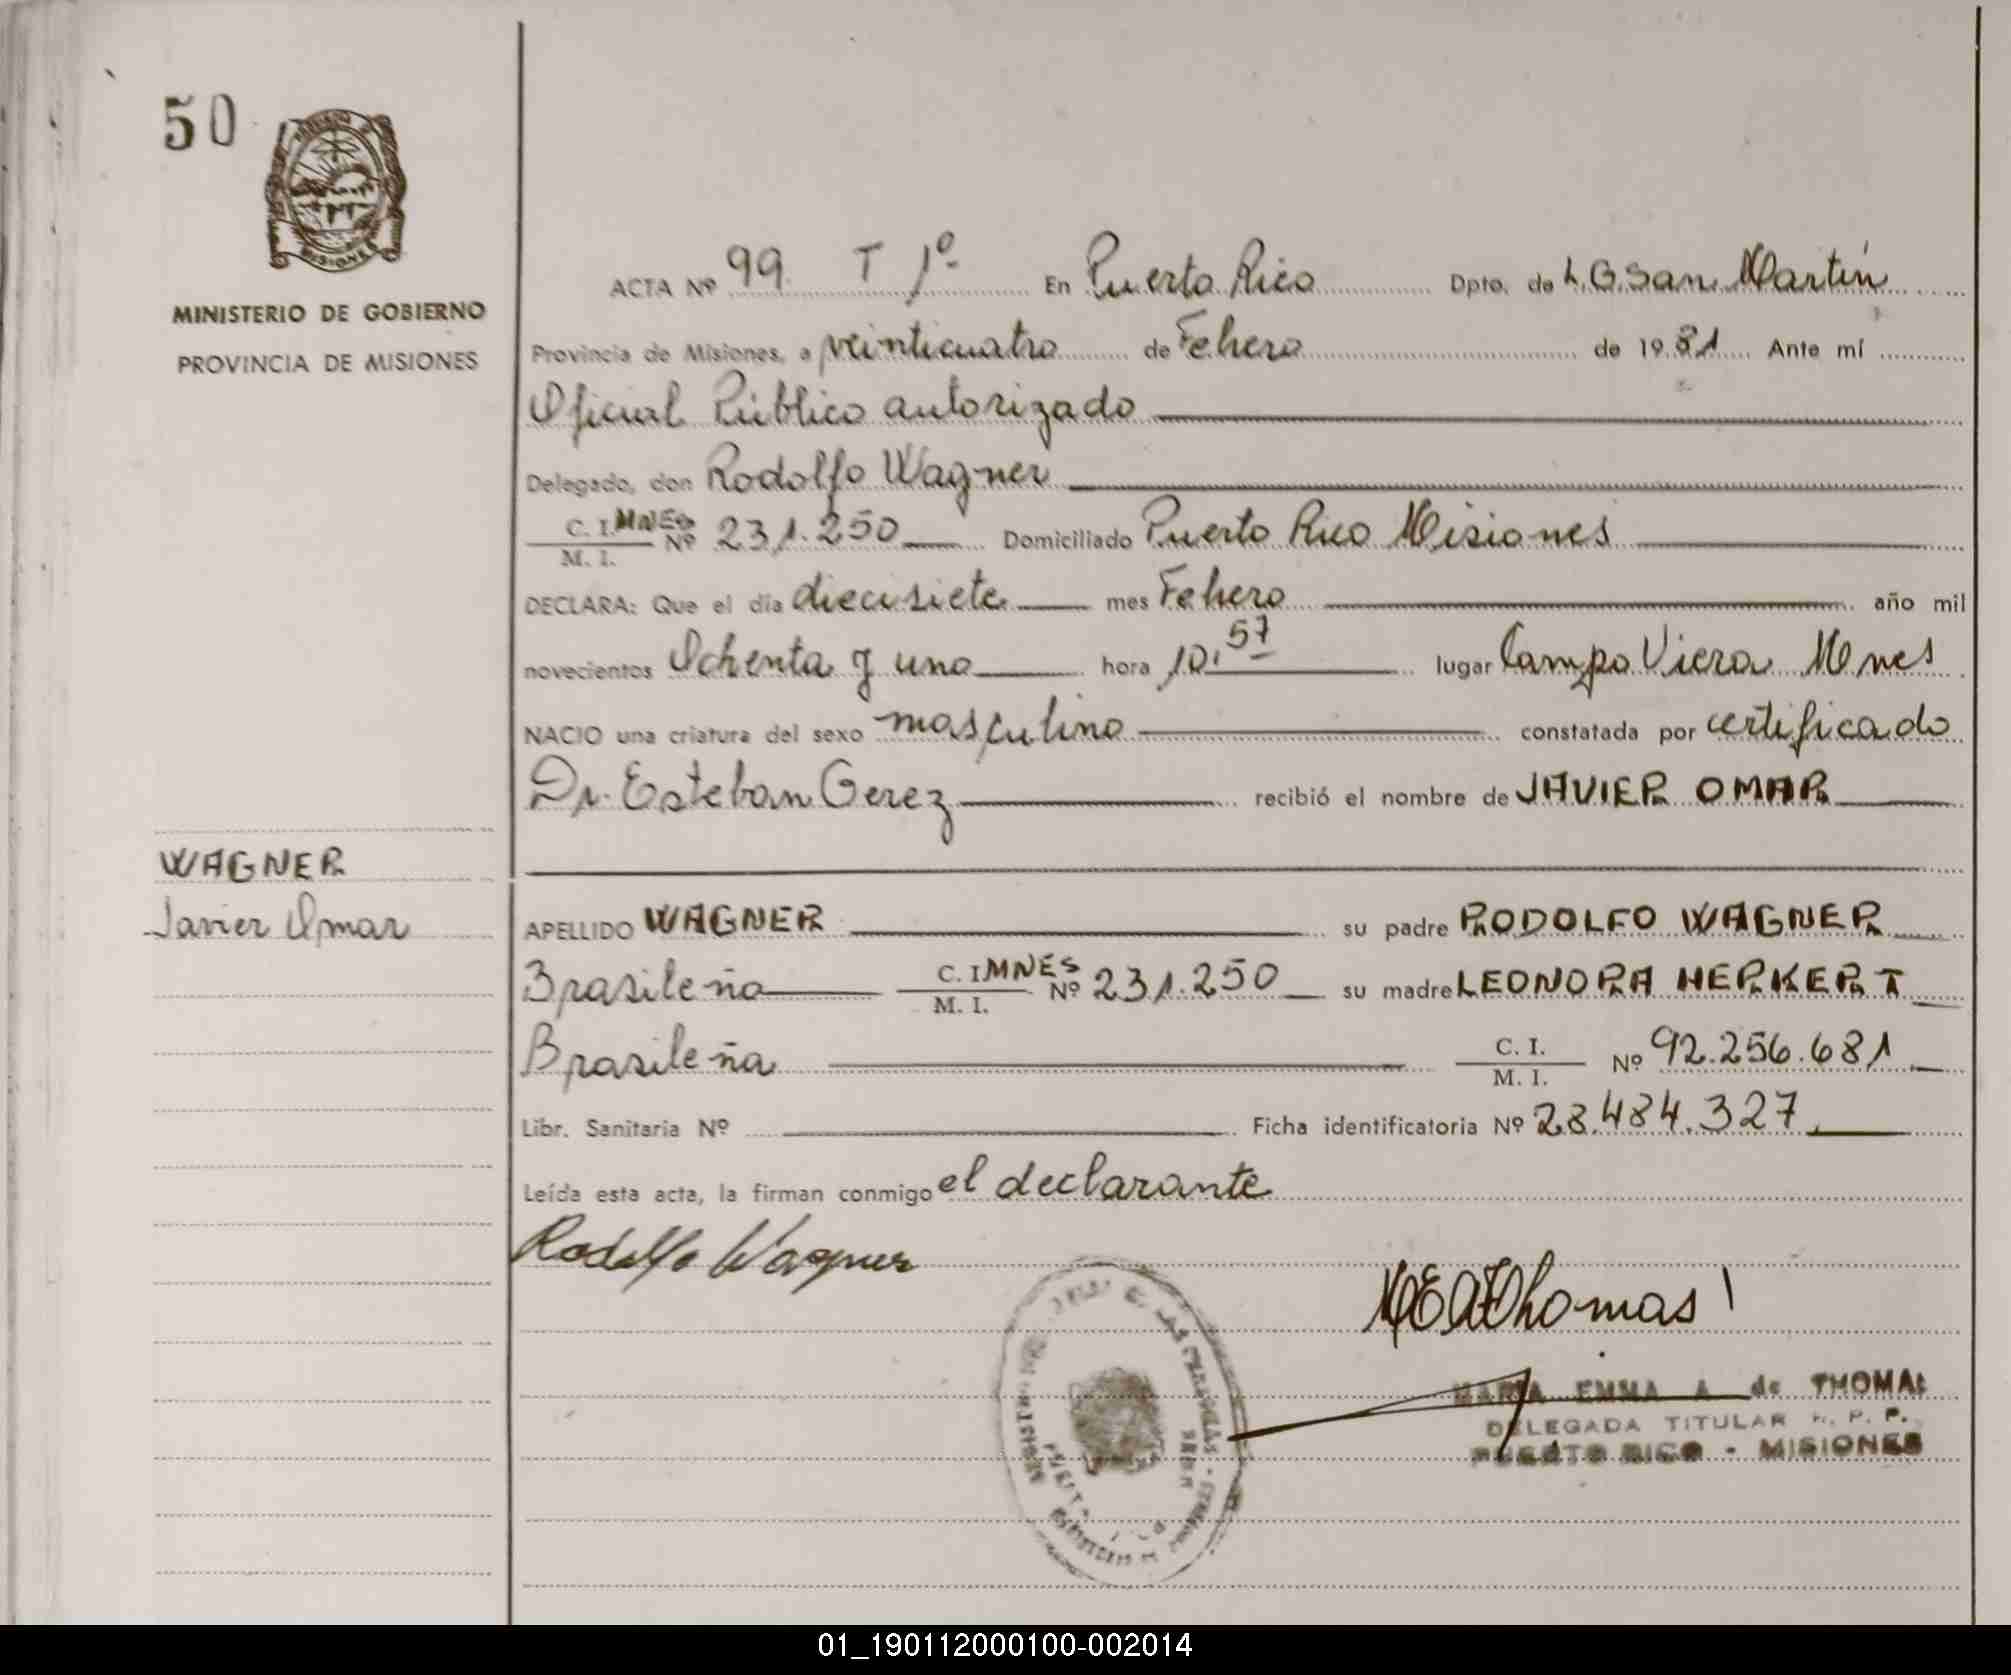 50
MISIONES
MINISTERIO DE GOBIERNO
PROVINCIA DE MISIONES
ACTA Nº 99 T 1º En Puerto Rico Dpto. de L.G.San Martín
Provincia de Misiones, a veinticuatro de Febero de 1981 Ante mí
Oficial Público autorizado
Delegado, don Rodolfo Wagner
C. I. MNES
M. I. Nº 231.250 Domiciliado Puerto Rico Misiones
DECLARA: Que el día diecisiete mes Febero año mil
novecientos Ochenta y uno hora 10,57 lugar Campo Viera Mnes
NACIO una criatura del sexo masculino constatada por certificado
Dr. Esteban Gerez recibió el nombre de JAVIER OMAR
WAGNER
Javier Omar
APELLIDO WAGNER su padre RODOLFO WAGNER
Brasileña C. I. MNES M. I. Nº 231.250 su madre LEONORA HERKERT
Brasileña C. I. M. I. Nº 92.256.681
Libr. Sanitaria Nº Ficha identificatoria Nº 28.484.327
Leída esta acta, la firman conmigo el declarante
Rodolfo Wagner
MEAThomas
MARIA EMMA A de THOMAS
DELEGADA TITULAR R. P. P.
PUERTO RICO - MISIONES
01_190112000100-002014